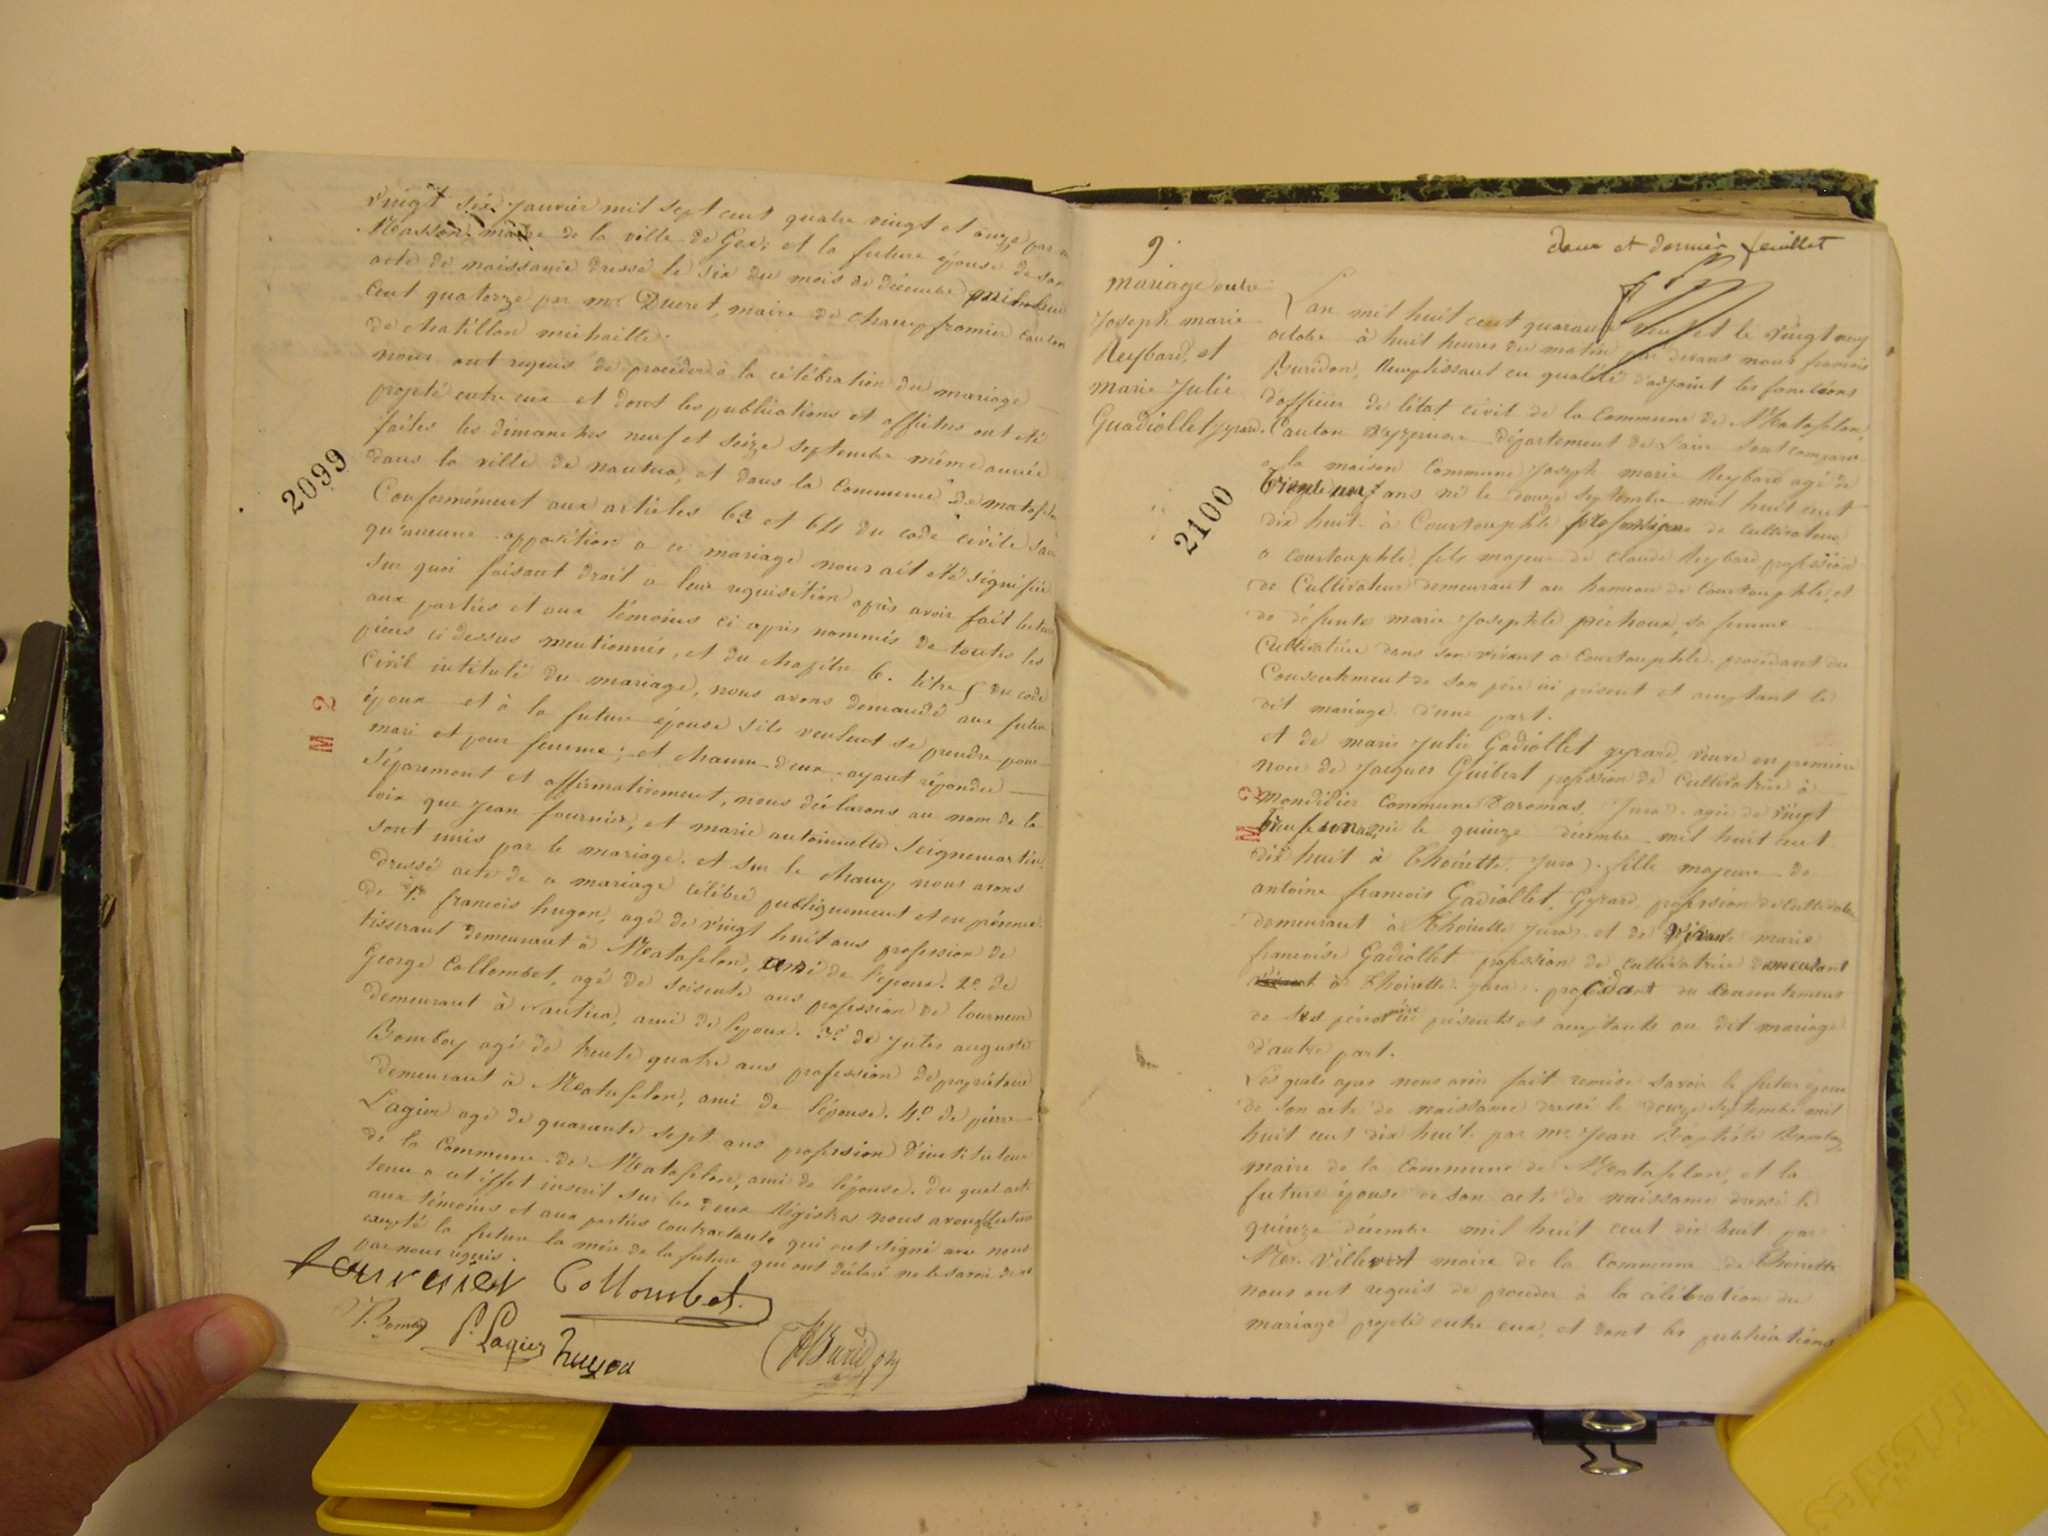 vingt six Janvier mil sept cent quatre vingt et onze par
Masson, maire de la ville de Gex; et la future épouse de son
acte de naissance dressé le six du mois de décembre mil huit
cent quatorze par mr. Ducret, maire de champfromier canton
de chatillon michaille.
nous ont requis de procéder à la célébration du mariage
projeté entre eux et dont les publications et affiches ont été
faites les dimanches neuf et seize septembre même année
dans la ville de nantua, et dans la commune de matafelon
Conformément aux articles 63 et 64 du code civile sans
qu'aucune opposition a ce mariage nous ait été signifiée
sur quoi faisant droit a leur requisition après avoir fait lecture
aux parties et aux témoins ci après nommés de toutes les
pièces ci dessus mentionnées, et du chapitre 6. titre 5 du code
Civil intitulé du mariage, nous avons demandé aux futur
époux et à la future épouse s'ils veulent se prendre pour
mari et pour femme; et chacun d'eux ayant répondu
séparement et affirmativement, nous déclarons au nom de la
loix que Jean fournier, et marie antoinette Seignemartin
sont unis par le mariage. et sur le champ nous avons
dressé acte de ce mariage célébré publiquement et en présence
de 1o. francois hugon, agé de vingt huit ans profession de
tisserant demeurant à Matafelon, ami de l'époux. 2o. de
George Collombet, agé de soisente ans profession de tourneur
demeurant à Nantua, ami de l'époux. 3o. de Jules auguste
Bomboy agé de trente quatre ans profession de propriétaire
demeurant à Matafelon, ami de l'épouse. 4o. de pierre
Lagier agé de quarante sept ans profession d'instituteur
de la commune de Matafelon, ami de l'épouse. du quel acte
tenu a cet effet inscrit sur les deux régistres nous avons lecture
aux témoins et aux parties contractante qui ont signé avec nous
excepté la future la mère de la future qui ont déclaré ne le savoir de ce
par nous requis.
fournier Collombet.
J. Bomboy P. Lagier hugon
Buridon
2099
M 2
deux et dernier feuillet
9.
mariage entre
Joseph marie
Reybard, et
marie Julie
Guadiollet gyrard.
2100
M 2
L'an mil huit cent quarante neuf et le vingt neuf
octobre à huit heures du matin par devant nous francois
Buridon, Remplissant en qualité d'adjoint les fonctions
d'officier de l'état civil de la commune de Matafelon,
Canton d'yzernore département de l'ain sont comparu
a la maison Commune Joseph marie Reybard agé de
trente un ans né le douze septembre mil huit cent
dix huit à Courtouphle profession de cultivateur
a courtouphle, fils majeur de Claude Reybard profession
de Cultivateur demeurant au hameau de courtouphle, et
de défunte marie Josephte périhoux, sa femme
Cultivatrice dans son vivant a courtouphle procédant du
Consentement de son père ici présent et acceptant le
dit mariage d'une part.
et de marie Julie Gadiollet gyrard, veuve en premiere
noce de Jacques Guibert profession de Cultivatrice à
Mondidier Commune d'aromas, Jura agée de vingt
née le quinze décembre mil huit cent
dix huit à Thoirette, Jura. fille majeure de
antoine francois Gadiollet, Gyrard, profession de cultivateur
demeurant à Thoirette Jura et de vivante marie
francoise Gadiollet profession de cultivatrice demeurant
à Thoirette Jura. procédant du consentement
de ses père et mère ici présents et acceptants au dit mariage
d'autre part.
Les quels après nous avoir fait remise savoir le futur époux
de son acte de naissance dressé le douze septembre mil
huit cent dix huit par mr. Jean Baptiste Bomboy
maire de la Commune de Matafelon, et la
future épouse de son acte de naissance dressé le
quinze décembre mil huit cent dix huit par
Mr. Villevert maire de la Commune de Thoirette
nous ont requis de proceder à la célébration du
mariage projeté entre eux, et dont les publications